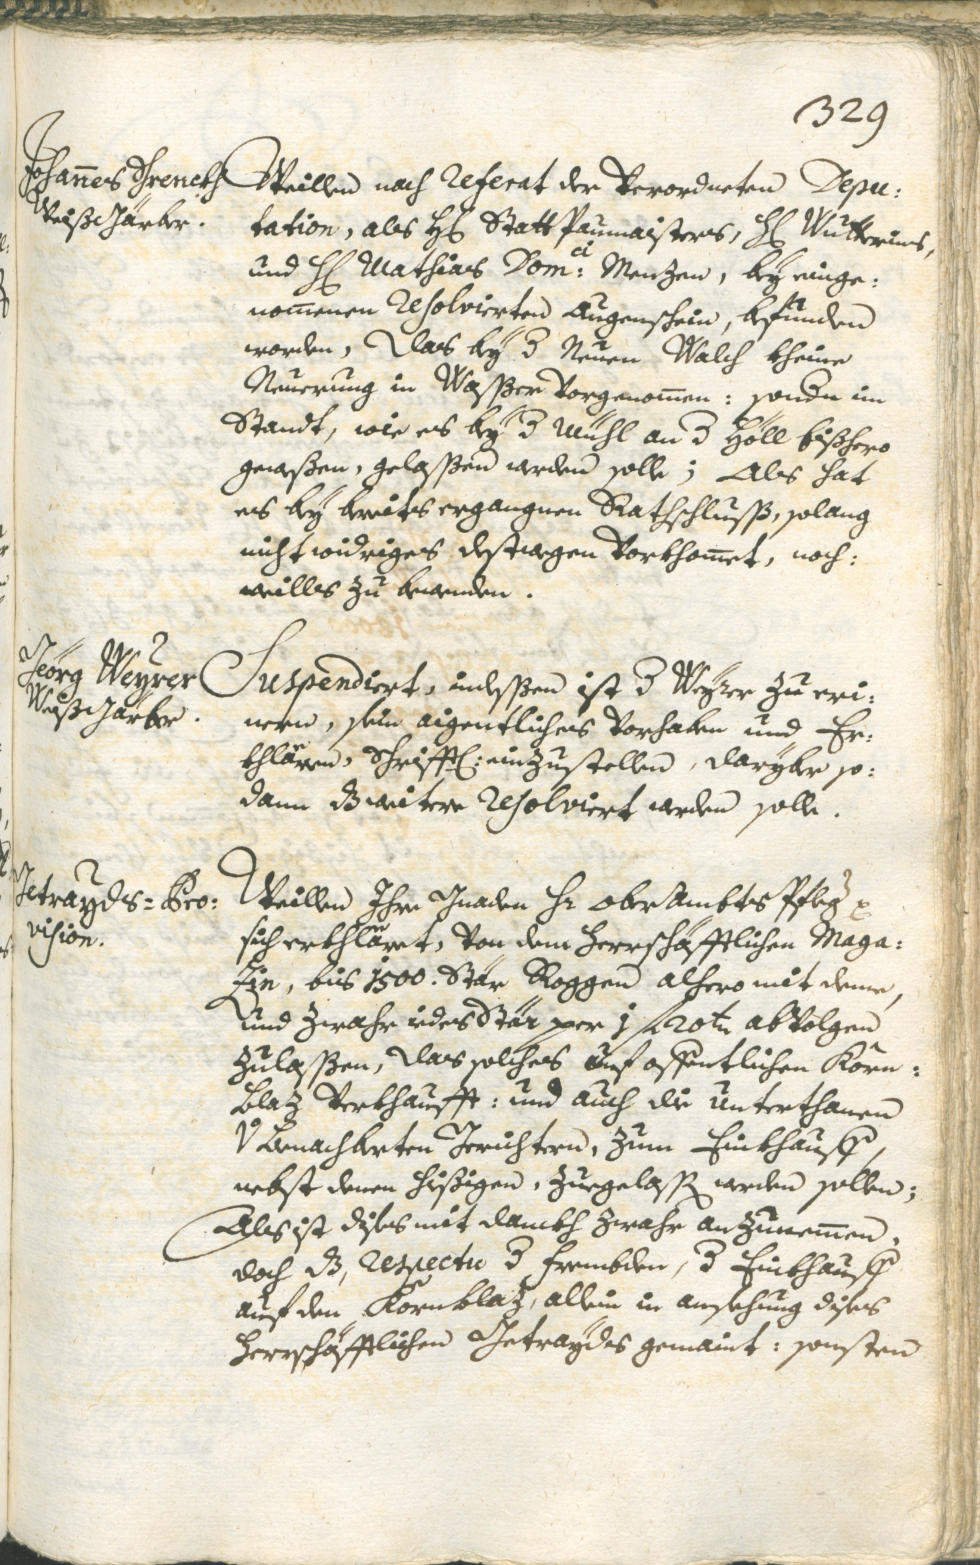 329
Johañes Threnckh
Weißgärber.
Weillen nach Referat der Verordneten Depu:
tation, als H: Statt Paumaisters, H: Wutterins,
und H: Mathias Dom:ci Menzen, beÿ einge:
nom̄enen Resolvierten Augenschein, befunden
worden, das beÿ d Neuen Walch kheine
Neuerung in Wasser Vorgenom̄en: sondn im
Standt, wie es beÿ d Mühl an d Höll bißhero
gewesen, gelassen werden solle; Als hat
es beÿ bereits ergangnen Rathschluss, solang
nicht widriges destwegen Vorkhom̄et, noch:
weilles zu bewenden.
Georg Weyrer
Weißgärber.
Suspendiert, indessen ist d Weyrer zu eri:
nern, sein aigentliches Vorhaben und Er:
khlären, Schrifftl: einzustellen, darÿber so:
dann d weitere Resolviert werden solle.
Getrayds= Pro:
vision.
Weillen Ihre Gnaden Hr ober Ambts Pfleg
sich erkhläret, Von dem Herrschafftlichen Maga:
Zin, bis 1500. Stär Roggen alhero mit deme,
und zwahr iedes Stär per 1 f 20 tr abVolgen
zulassen, das solches auf offentlichen Korn:
blaz Verkhaufft: und auch die Unterthanen
V Benachberten Gerichtern, zum Einkhauff,
nebst denen hießigen, zuegelassen werden sollen;
Als ist dises mit dankh zwahr anzunem̄en,
doch d, respectu d frembden, d Einkhauff
auf den Kornblaz, allein in ansehung dises
Herrschafftlichen Getraydes gemaint: sonsten